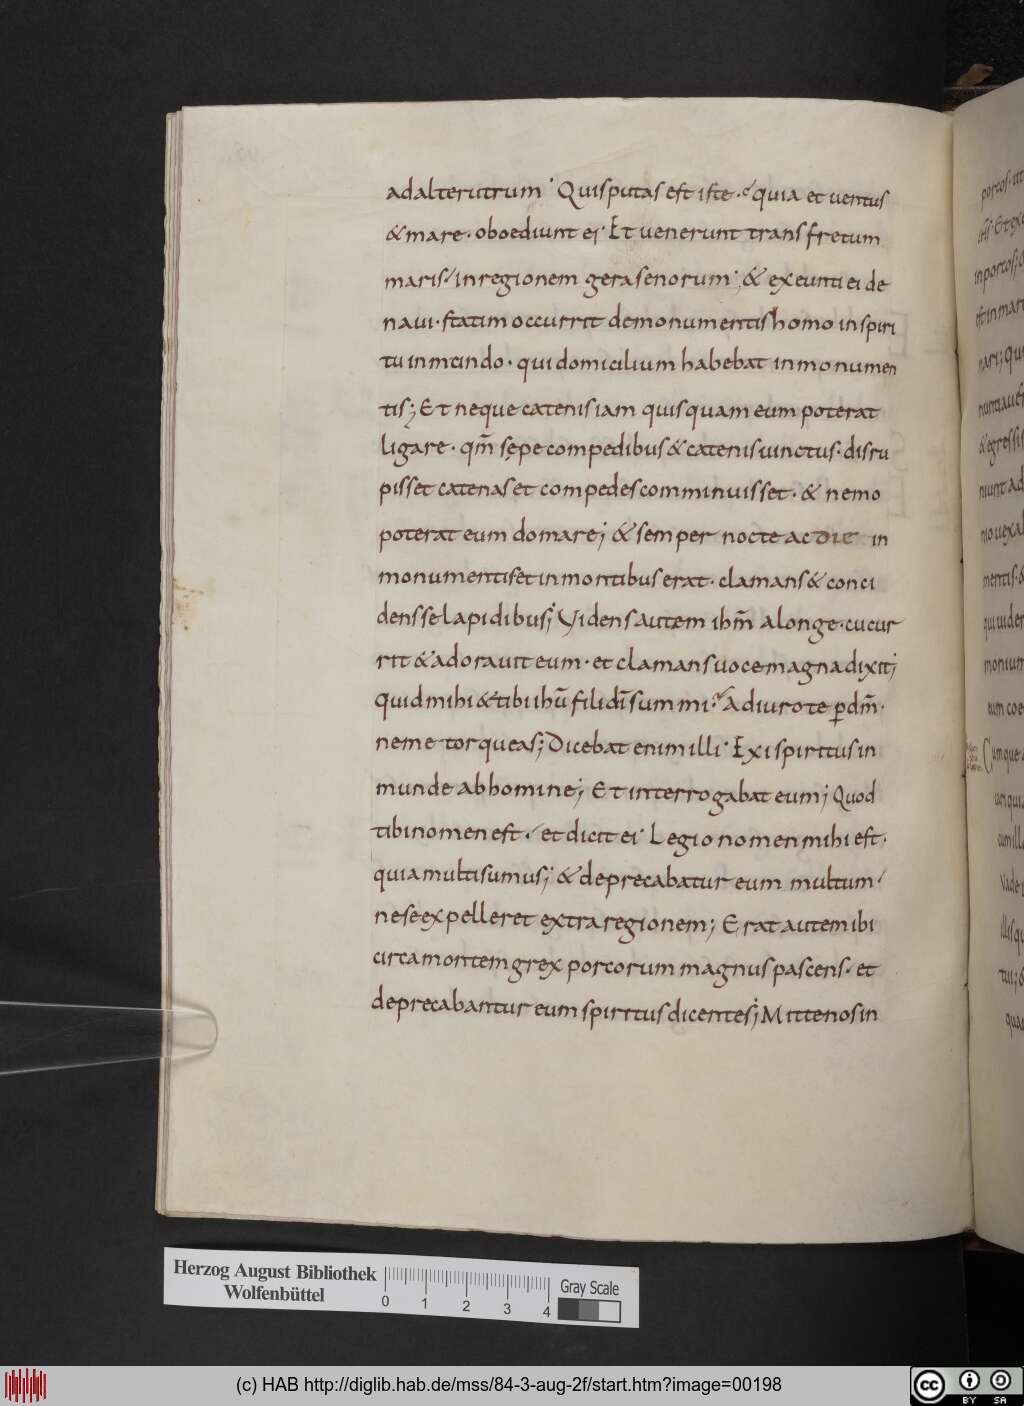 ad alterutrum· Quis putas est iste·? quia et uentus
& mare· oboediunt ei· Et uenerunt trans fretum
maris/ in regionem gerasenorum·; & exeunti ei de
naui· statim occurrit de monumentis homo in spiri
tu inmundo· qui domicilium habebat in monumen
tis; Et neque catenis iam quisquam eum poterat
ligare· qm̄ sępe compedibus & catenis uinctus· disru
pisset catenas et compedes comminuisset· & nemo
poterat eum domare; & semper nocte ac die in
monumentis et in montibus erat· clamans & conci
dens se lapidibus; Uidens autem ihm̄ a longe· cucur
rit & adorauit eum· et clamans uoce magna dixit;
Quid mihi & tibi ihū fili dī summi·? Adiuro te ꝑ dm̄·
ne me torqueas; Dicebat enim illi· Exi spiritus in
munde ab homine; Et interrogabat eum; Quod
tibi nomen est·/ et dicit ei· Legio nomen mihi est·
quia multi sumus; & deprecabatur eum multum/
ne se expelleret extra regionem; Erat autem ibi
circa montem grex porcorum magnus pascens· et
deprecabantur eum spiritus dicentes; Mitte nos in
porcos· ut
in porcos; &
est in mare
nari; Qui
nuntiauer
& egressi s
niunt ad
nio uexa
mentis· &
qui uider
monium
eum coe
Cumque a
Vade
illis qu
tui; &
Herzog August Bibliothek
Wolfenbüttel
0 1 2 3 4
Gray Scale
(c) HAB http://diglib.hab.de/mss/84-3-aug-2f/start.htm?image=00198
cc BY SA